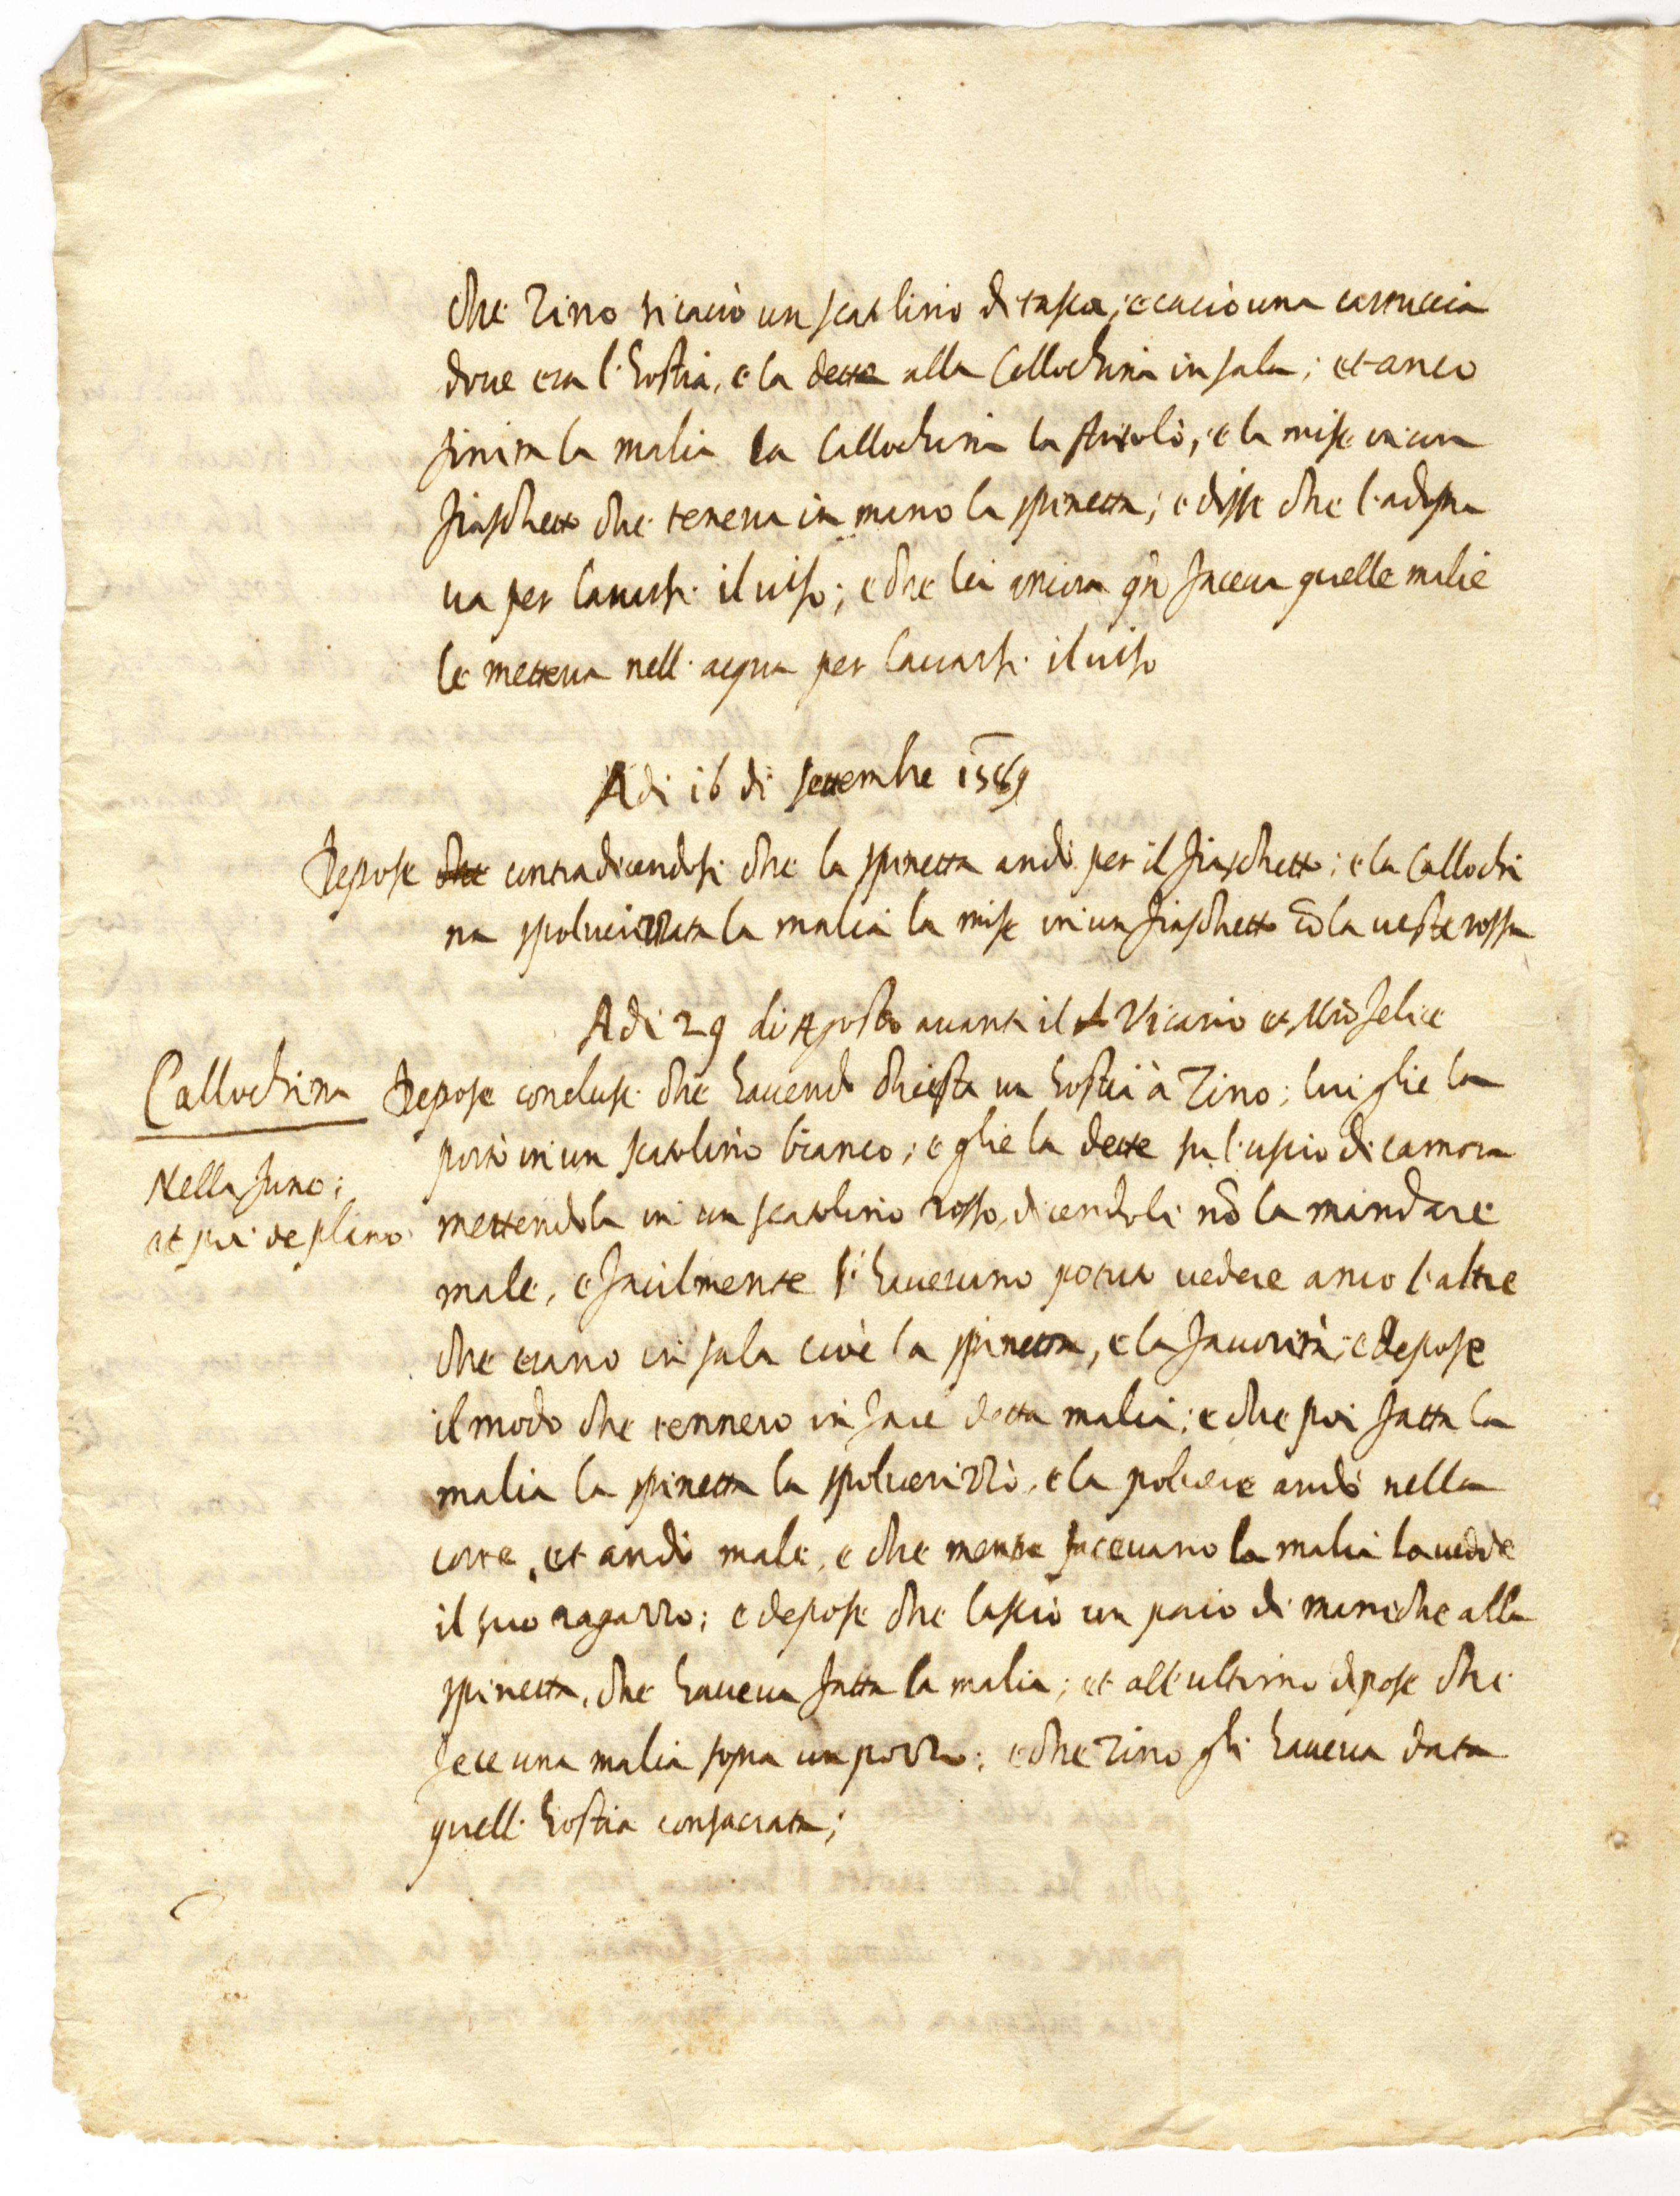 che Tino si cacciò un scatolino di tasca, e cacciò una cartuccia
dove era l'hostia, e la dette alla Callochina in sala; et anco
finita la malia la Callochina la stritolò, e la mise in un
fiaschetto che teneva in mano la spinetta; e disse che l'adopra
va per lavarsi il viso; e che lei ancora qñ faceva quelle malie
le metteva nell'acqua per lavarsi il viso
Adi 16 di settembre 1589
Depose che contradicendosi che la spinetta andò per il fiaschetto; e la Callochi
na spolverizzata la malia la mise in un fiaschetto cõ la veste rossa
Adi 29 di Agosto avanti il Vicario et felice
Callochina
Depose concluse che havendo chiesta un hostia à Tino; lui glie la
portò in un scatolino bianco; e glie la dette su l'uscio di camera
Nella fune;
et poi de plano
mettendola in un scatolino rosso, dicendoli nõ la mandare
male, e facilmente l'haverano potuto vedere anco l'altre
che erano in sala cioè la spinetta, e la favorita; e depose
il modo che tennero in fare detta malia; e che poi fatta la
malia la spinetta la spolverizzò, e la polvere andò nella
corte, et andò male, e che mentre facevano la malia la vedde
il suo ragazzo; e depose che lasciò un paio di maniche alla
spinetta, che haveva fatta la malia; et all'ultimo depose che
fece una malia sopra un pozzo; e che Tino gli haveva data
quell'hostia consacrata;